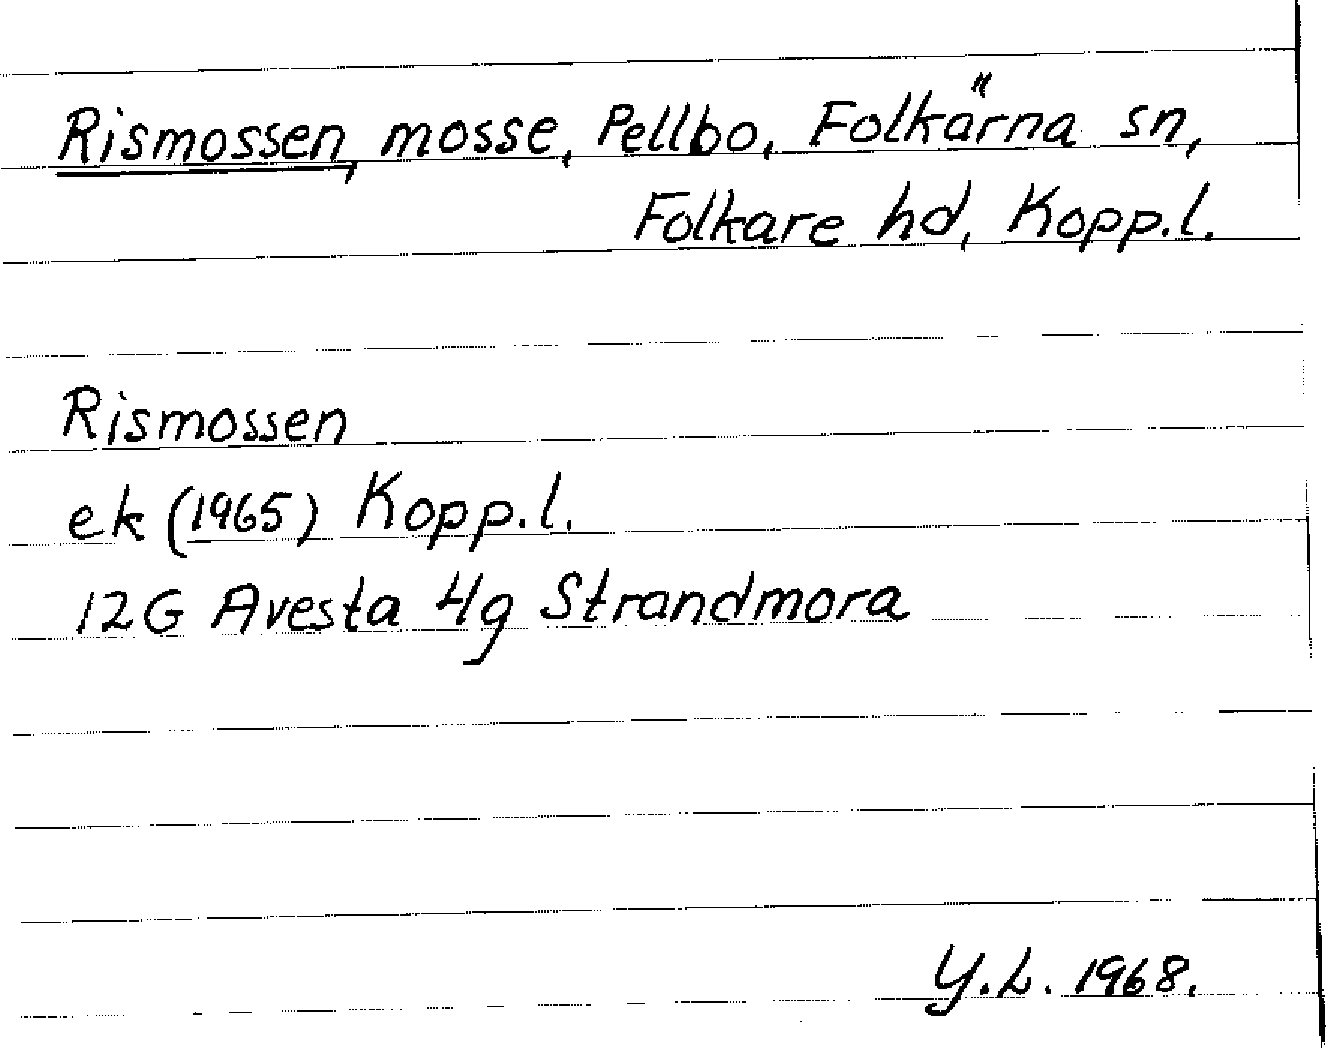 Rismossen, mosse, Pellbo, Folkärna sn,
Folkare hd, Kopp.l.
Rismossen
ek (1965) Kopp.l.
12G Avesta 4g Strandmora
Y.L. 1968.